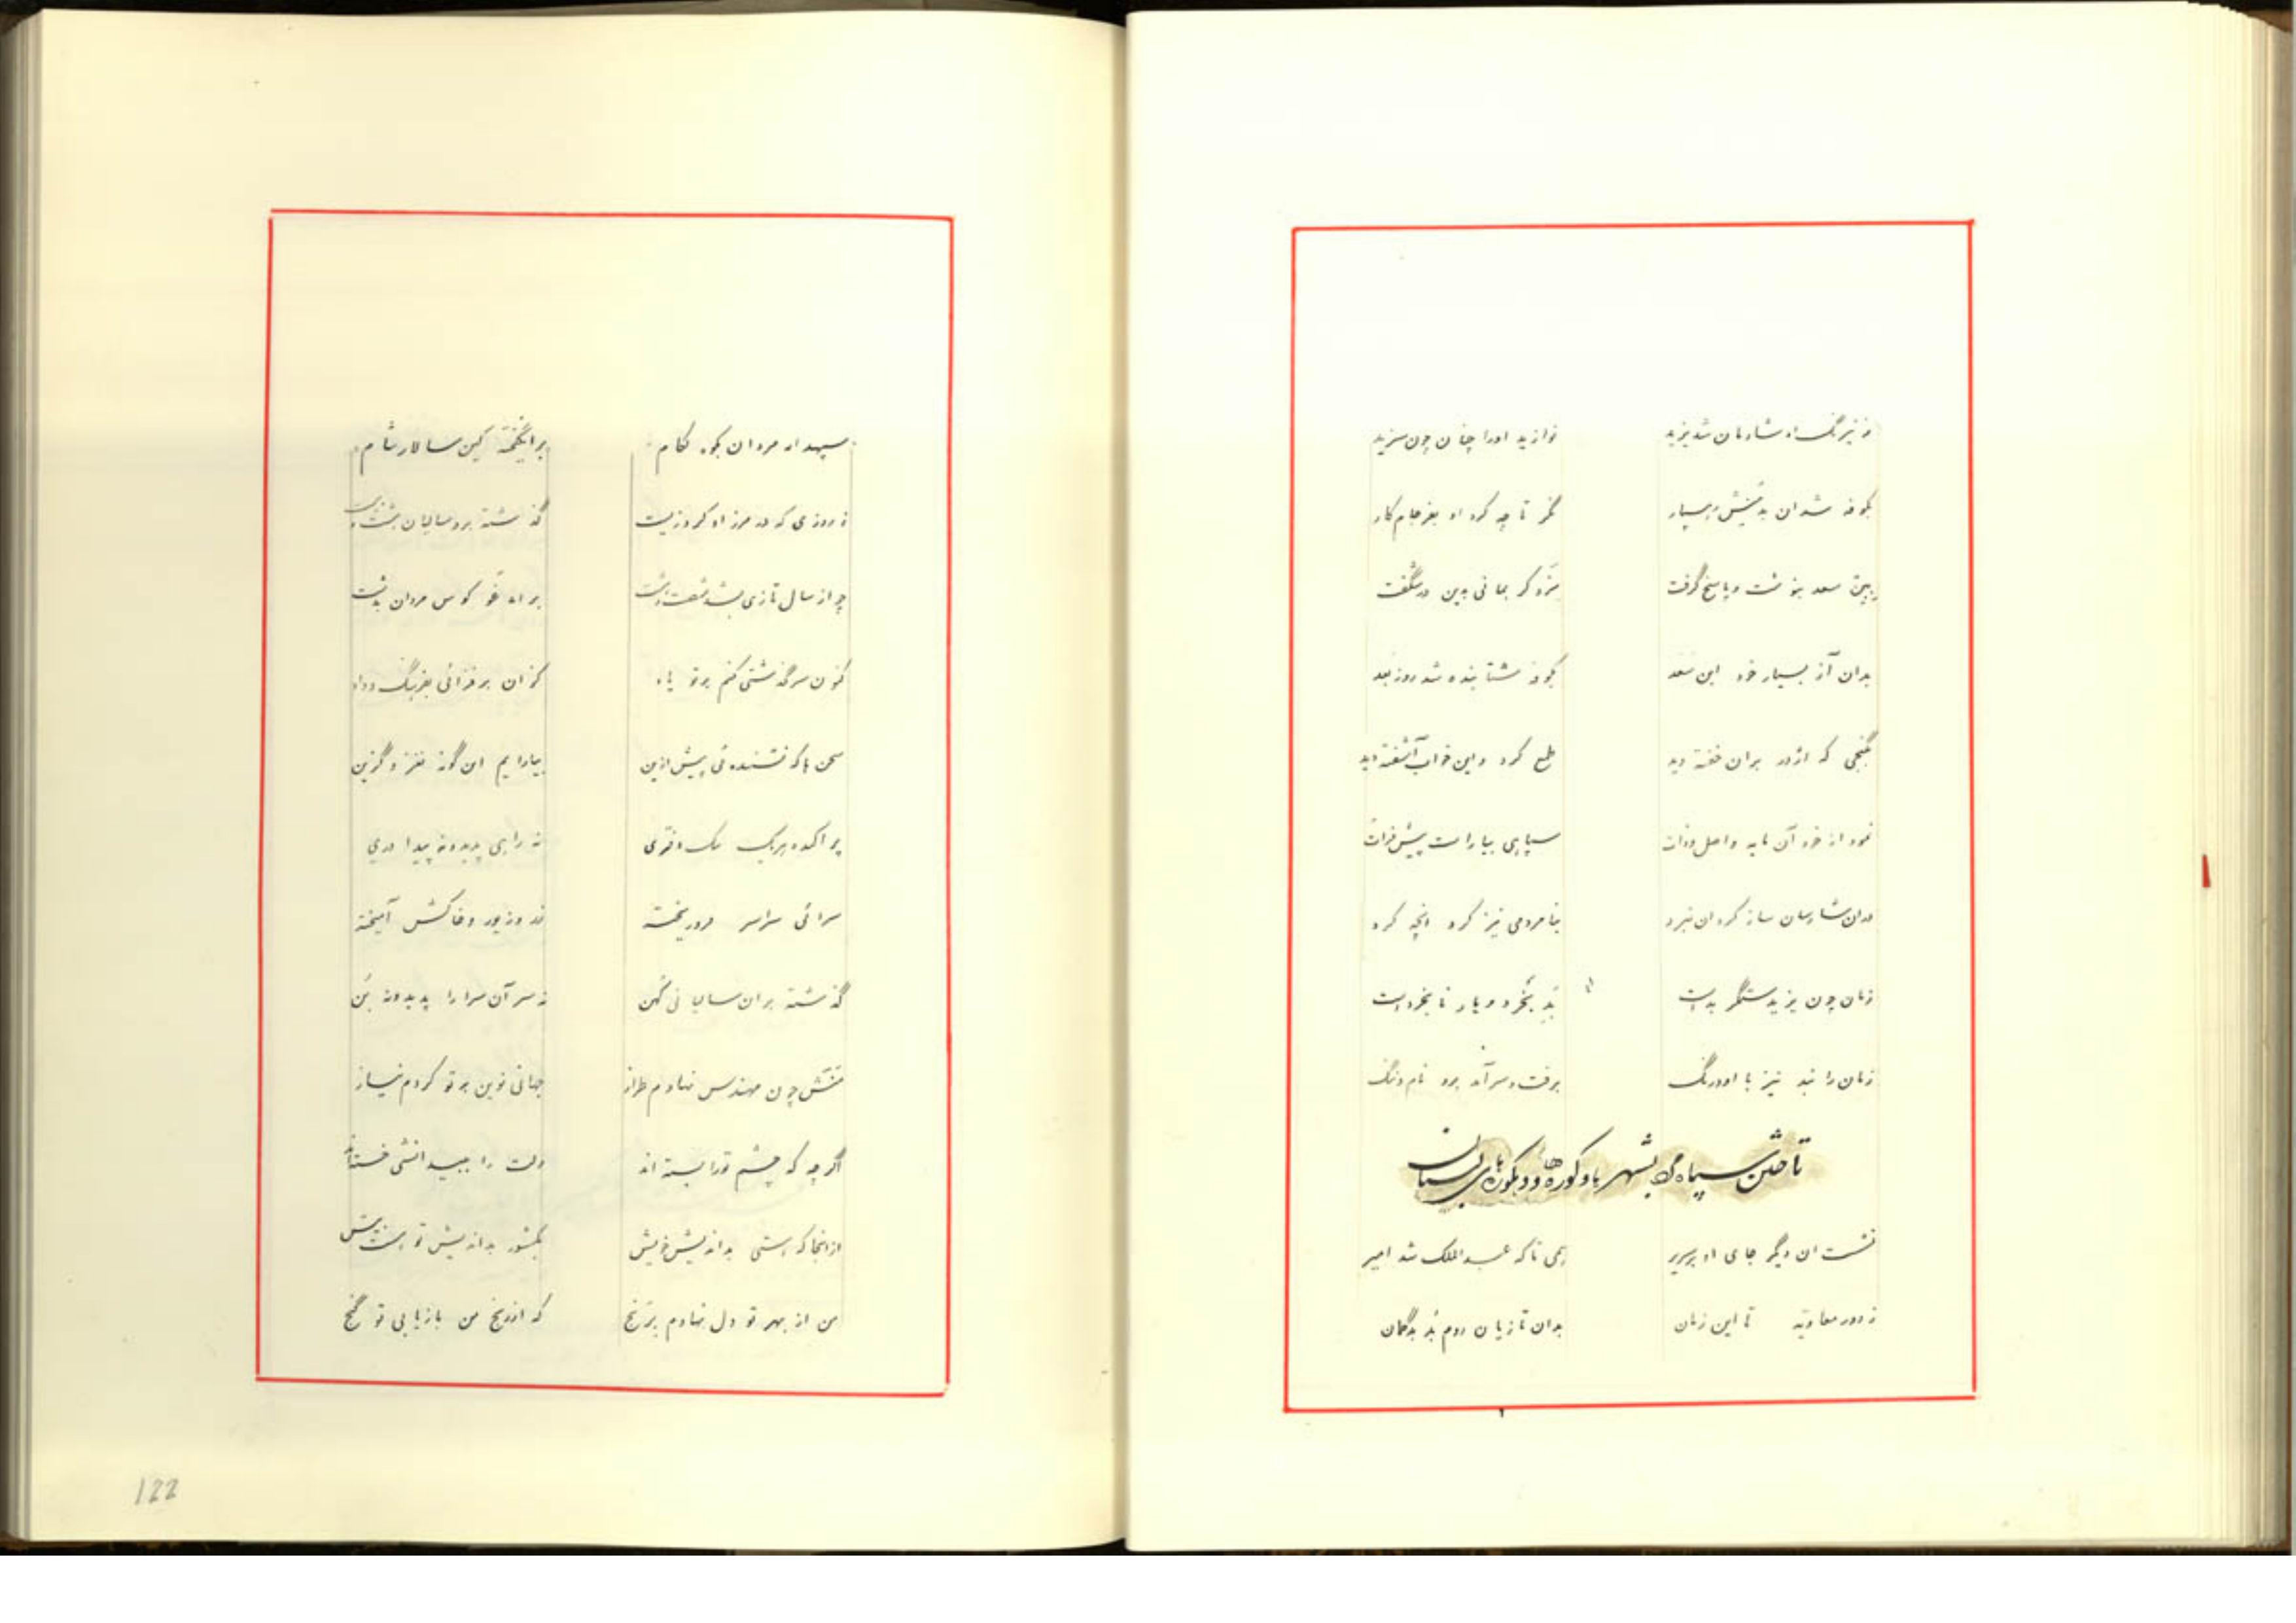 ز نیرنگ او شادمان شد یزید نوازید او را چنان چون سزید
بکوفه شد ان بدمنش رهسپار نگر تا چه کرد او بفرجام کار
سعد بنوشت و پاسخ گرفت سزد گر بمانی بدین در شگفت
بدان آز بسیار خود ابن سعد بکوفه شتابنده شد روز بعد
بگنجی که اژدر بران خفته دید طمع کرد و این خواب آشفته دید
نمود از خود آن مایه و اصل و ذات سپاهی بیاراست پیش فرات
بدان شارسان ساز کرد ان نبرد بنامردمی نیز کرد انچه کرد
زمان چون یزید ستمگر بداست بد بخرد و یار نابخرد است
زمان را نبد نیز با او درنگ برفت و سر آمد برو نام و ننگ
تاختن سپاه بشهر و
نشست ان دگر جای او بر سریر همی تا که عبدالملک شد امیر
ز دور معاویه تا این زمان بدان تازیان روم بد بدگمان
سپهدار مردان بکوه لکام برانگیخته کین سالار شام
ز روزی که در مرز او کرد زیست گذشته برو سالیان
چو از سال تازی بشد شصت و هشت برامد غو کوس مردان بدشت
کنون سرگذشتی کنم بر تو یاد کزان برفزائی بفرهنگ و داد
سخن ها که نشنیده ئی پیش ازین بیارایم این گونه نغز و گزین
پراکنده هر یک یک دفتری نه راهی پدید و نه پیدا دری
سرائی سراسر فرو ریخته زر و زیور و خاکش آمیخته
گذشته بران سالیانی کهن نه سر آن سرا را پدید و نه بن
منش چون مهندس نهادم طراز جهانی نوین بر تو کردم نیاز
اگر چه که چشم تو را بسته اند دلت را ببیدانشی خسته‌اند
از انجا که هستی بد اندیش خویش بکشور بد اندیش تو هست بیش
من از بهر تو دل نهادم برنج که از رنج من بازیابی تو گنج
122